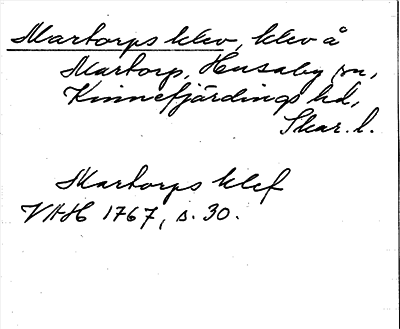 Martorps klev, klev å
Martorp, Husaby sn,
Kinnefjärdings hd,
Skar. l.
Martorps klef
VAH 1767, s. 30.